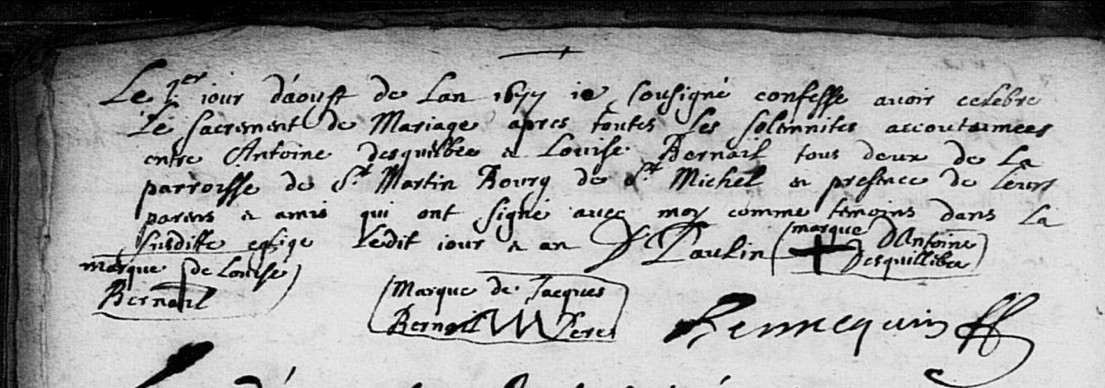 Le 1er jour d'aoust de Lan 1677 ie sousigné confesse avoir celebré
Le sacrement de Mariage apres toutes les solemnites accoutumees
entre Antoine desquilbee & Louise Bernail tous deux de La
parroisse de St Martin Bourg de St Michel en presence de leurs
parens & amis qui ont signé avec moy comme temoins dans la
susditte eglise Ledit iour & an D Paulin marque D'Antoine
Desquillbee
marque de Louise
Bernail
Marque de Jacques
Bernail Pere
Hennequin